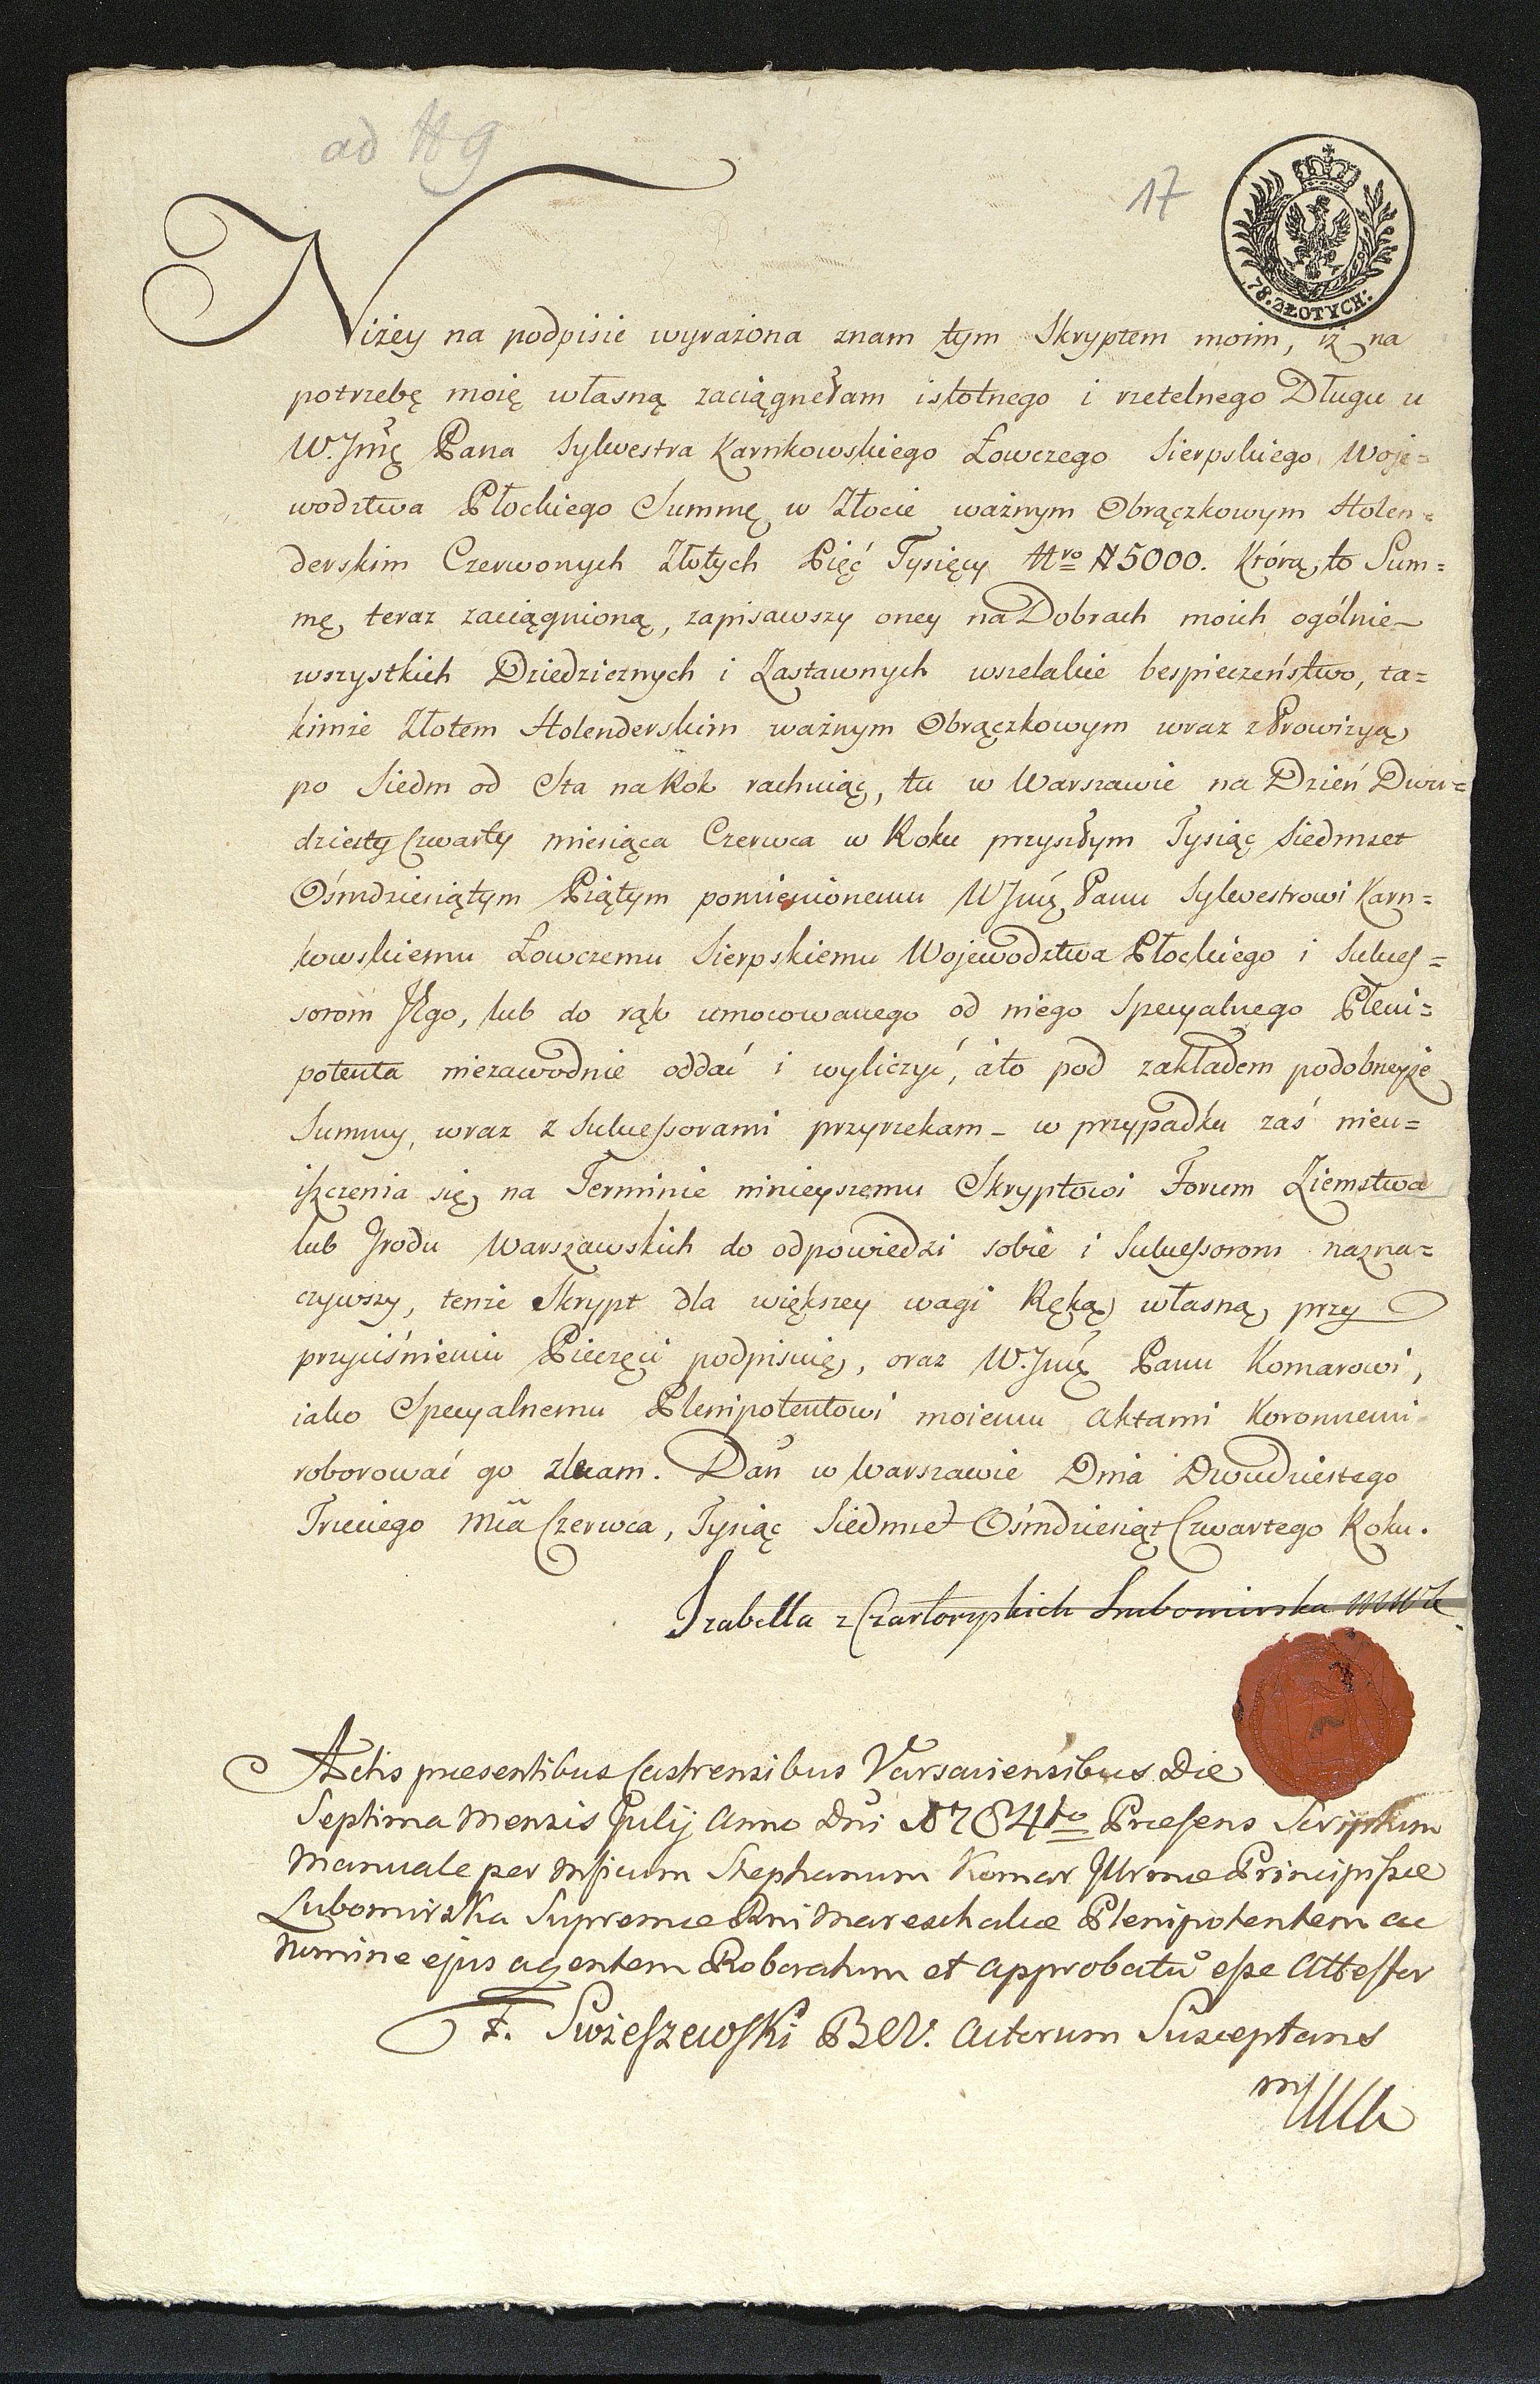 ad N 9
17
78. ZŁOTYCH:
Niżey na podpisie wyrażona znam tym Skryptem moim, iż na
potrzebę moię własną zaciągnełam istotnego i rzetelnego Długu u
W. Jmę Pana Sylwestra Karnkowskiego Łowczego Sierpskiego Woje=
wodztwa Płockiego Summę w Złocie ważnym Obrączkowym Holen=
derskim Czerwonych Złotych Pięć Tysięcy Nro # 5000. Którą to Sum=
mę teraz zaciągnioną, zapisawszy oney na Dobrach moich ogólnie
wszystkich Dziedzicznych i Zastawnych wszelakie bespieczeństwo, ta=
kimże Złotem Holenderskim ważnym Obrączkowym wraz z Prowizyą
po Siedm od Sta na Rok rachuiąc, tu w Warszawie na Dzień Dwu=
dziesty Czwarty miesiąca Czerwca w Roku przyszłym Tysiąc Siedmset
Ośmdziesiątym Piątym pomienionemu WJmę Panu Sylwestrowi Karn=
kowskiemu Łowczemu Sierpskiemu Wojewodztwa Płockiego i Sukces=
sorom Jego, lub do rąk umocowanego od niego Specyalnego Pleni=
potenta niezawodnie oddać i wyliczyć, ato pod zakładem podobneyże
Summy, wraz z Sukcessorami przyrzekam – w przypadku zaś nieu=
iszczenia się na Terminie ninieyszemu Skryptowi Forum Ziemstwa
lub Grodu Warszawskich do odpowiedzi sobie i Sukcessorom nazna=
czywszy, tenże Skrypt dla większey wagi Ręką własną przy
przyciśnieniu Pieczęci podpisuię, oraz W. Jmę Panu Komarowi,
iako Specyalnemu Plenipotentowi moiemu Aktami Koronnemi
roborować go zlecam. Dan w Warszawie Dnia Dwudziestego
Trzeciego Mca Czerwca, Tysiąc Siedmset Ośmdziesiąt Czwartego Roku.
Izabella z Czartoryskich Lubomirska
Actis praesentibus Castrensibus Varsaviensibus Die
Septima Mensis Julij Anno Dni 1784to Praesens Scriptum
Manuale per Mficum Stephanum Komar Illrmae Principissae
Lubomirska Supremae Rni Mareschalcae Plenipotentem ac
Nomine ejus agentem Roboratum et approbatu esse Attestor
F. Swieszewski BCV. Actorum Susceptans